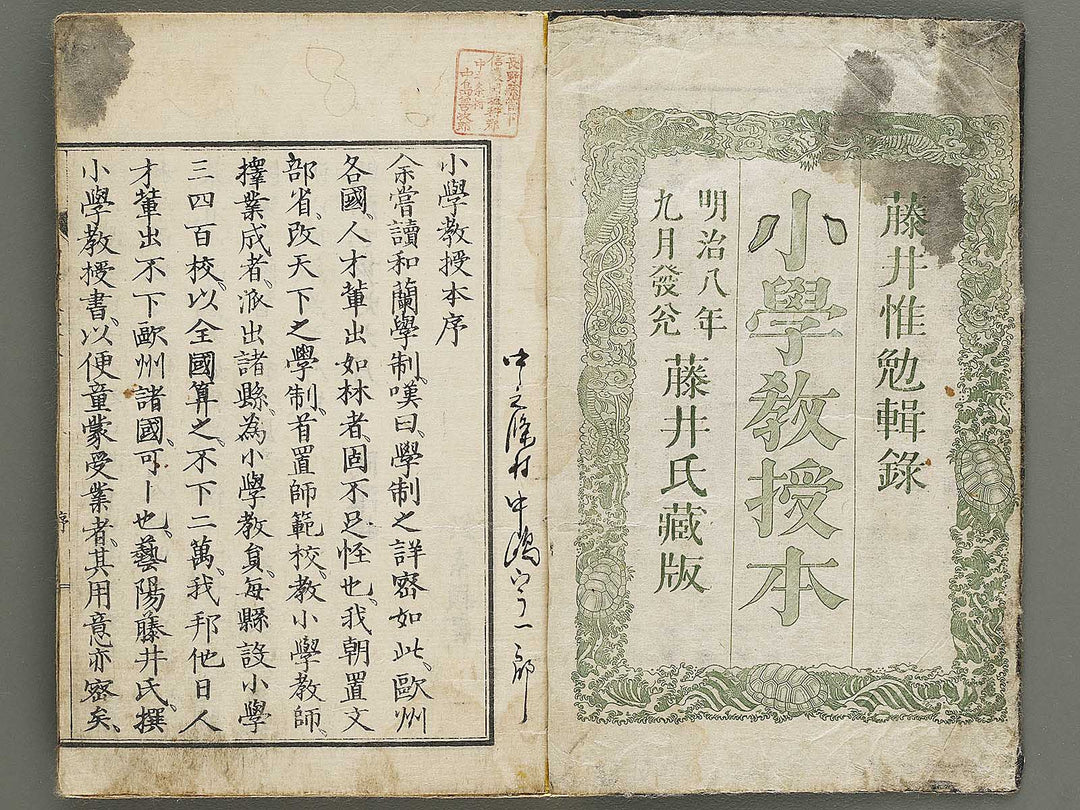 藤井惟勉輯錄
小學教授本
明治八年
九月發兌
藤井氏藏版
小學教授本序
余嘗讀和蘭學制、嘆曰、學制之詳密如此、歐州
各國、人才輩出如林者、固不足怪也、我朝置文
部省、改天下之學制、首置師範校、教小學教師、
擇業成者、派出諸縣、為小學教員、每縣設小學
三四百校、以全國算之、不下二萬、我邦他日人
才輩出不下歐州諸國、可卜也、藝陽藤井氏、撰
小學教授書、以便童蒙受業者、其用意亦密矣、
序